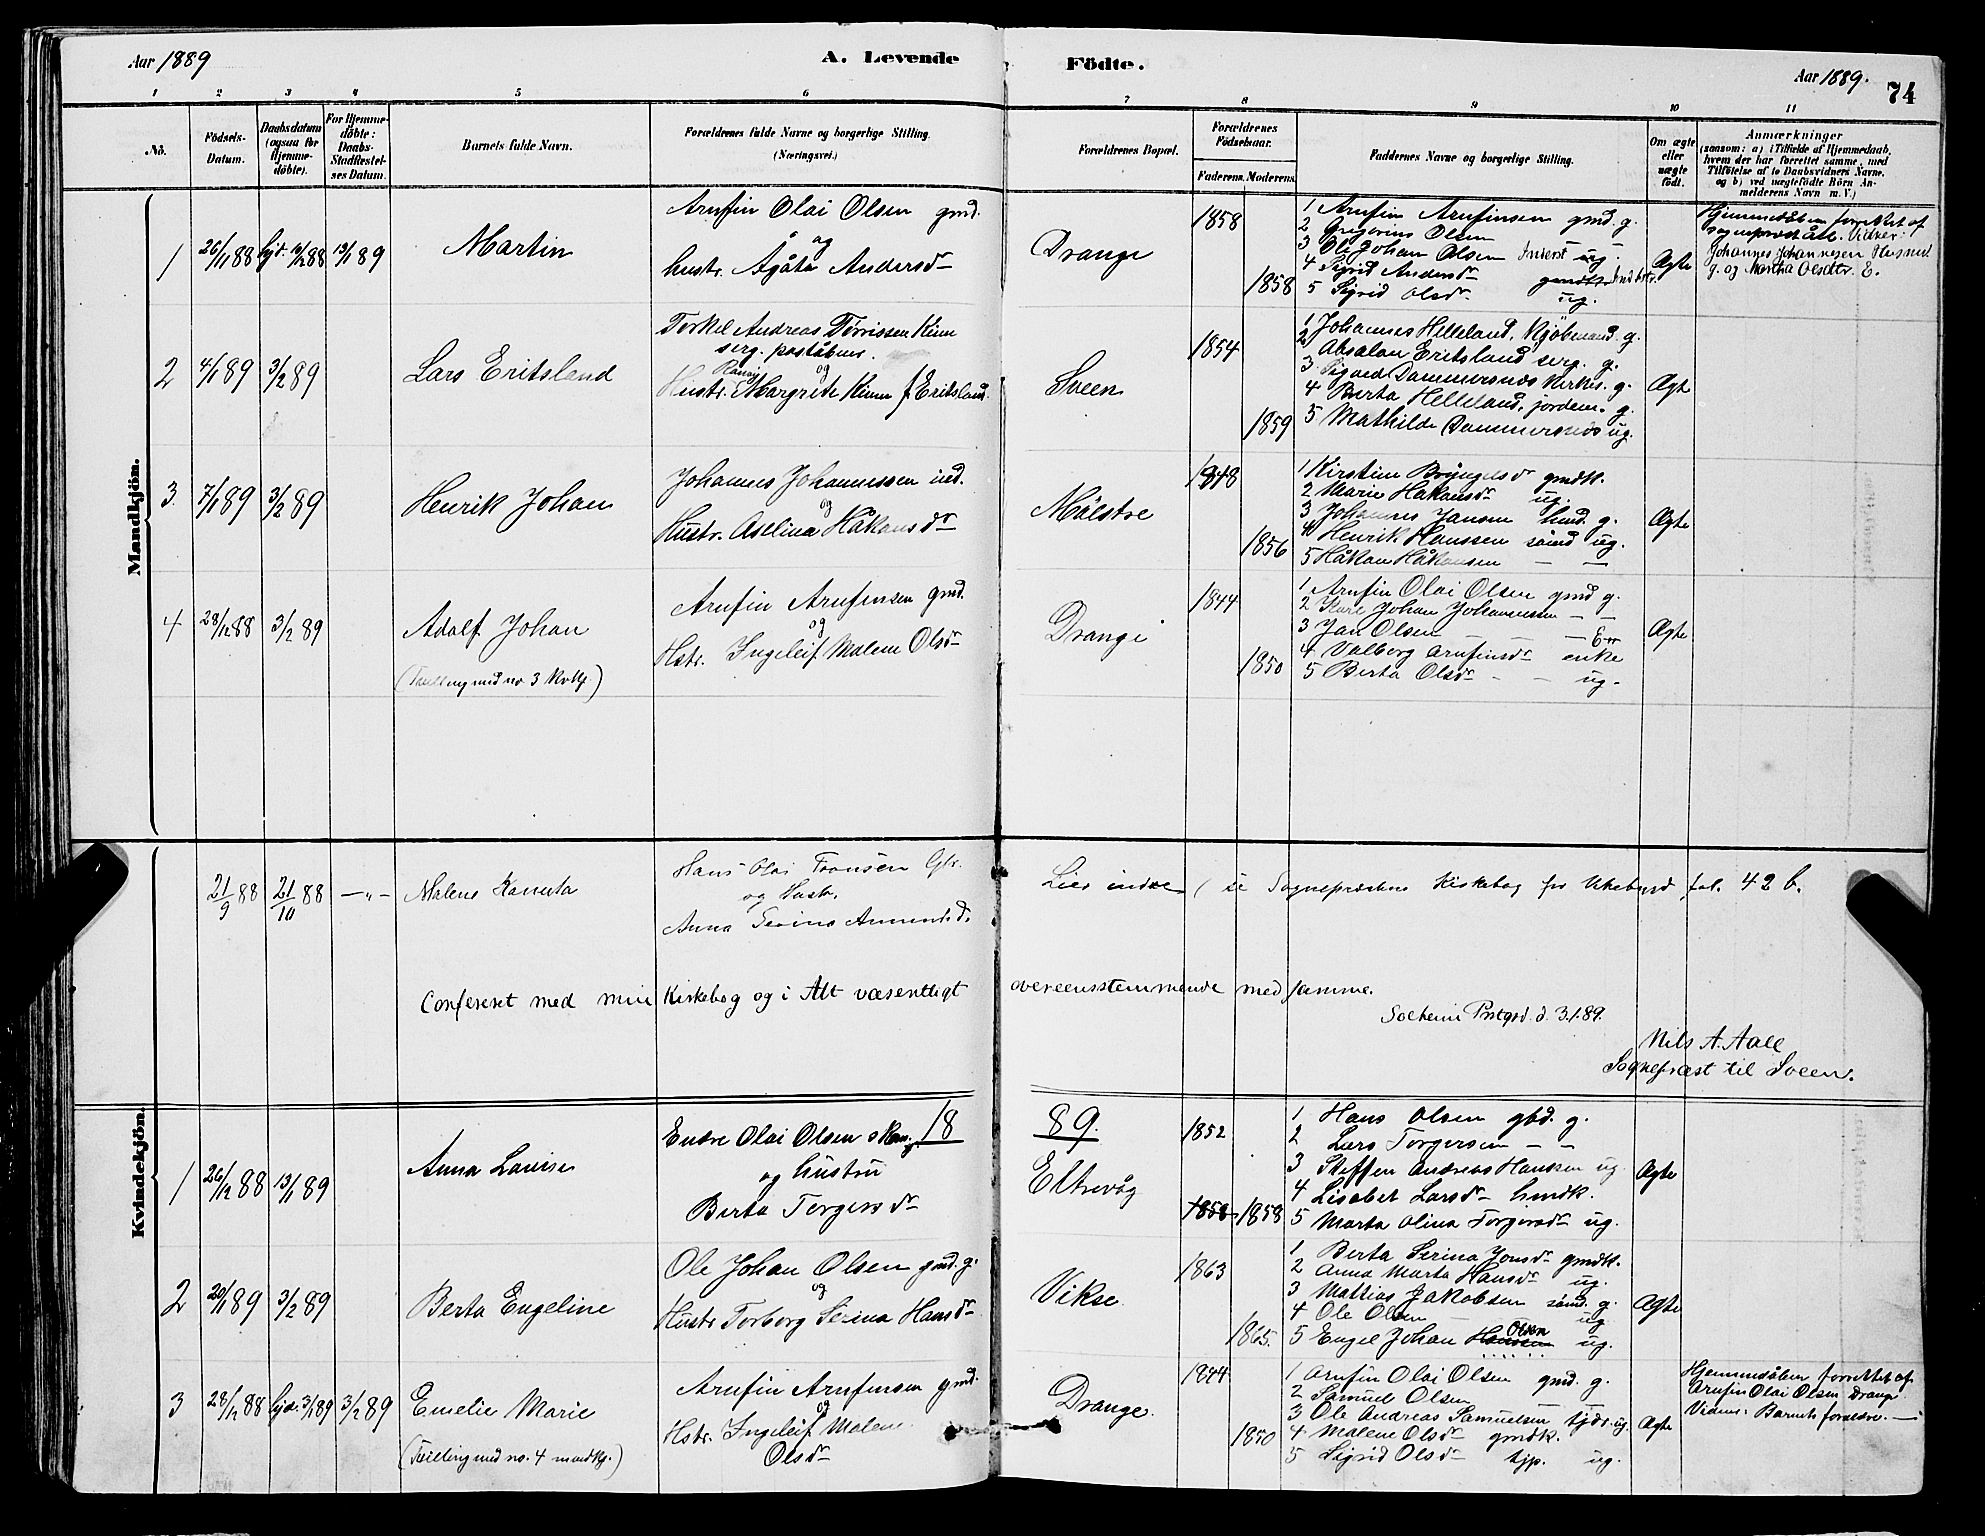 Aar 1889
A. Levende
Födte.
Aar 1889.
74
1 2 3 4 5 6 7 8 9 10 11
No.
Födsels-Datum.
Daabsdatum (ogsaa for Hjemme-döbte).
For Hjemme-döbte: Daabs-Stadfæstel-ses Datum.
Barnets fulde Navn.
Forældrenes fulde Navne og borgerlige Stilling.
(Næringsvei.)
Forældrenes Bopæl.
Forældrenes Födselsaar.
Faderens. Moderens.
Faddernes Navne og borgerlige Stilling.
Om ægte eller uægte födt.
Anmærkninger
(saasom: a) i Tilfælde af Hjemmedaab,
hvem der har forrettet samme, med
Tilföielse af to Daabsvidners Navne.
og b) ved uægtefödte Börn An-
melderens Navn m. V.)
Mandkjön.
1 26/11 88 hjd. 16/12 88 13/1 89
Martin
Arnfin Olai Olsen gmd.
og
hustr. Agåta Andersdr
Drange
1858
1858
1 Arnfin Arnfinsen gmd. g.
2 Gregorius Olsen
3 Ole Johan Olsen Inderst ug.
4 Sigrid Andersdr
5 Sigrid Olsdr ug.
Ægte
Hjemmedåben forrettet af
sogneprest Åll. Vidner:
Johannes Johannesen
g. og Martha Olsdtr. E.
2 4/1 89 3/2 89
Lars Eritsland
Torkel Andreas Törrissen Kinn
serg. poståbner.
og
Hustr. Ranvig Margrete Kinn f. Eritsland
Sveen
1854
1859
1 Johannes Helleland, Kjöbmand g.
2 Absalon Eritsland serg. g.
3 Sigvald Dammersnæs Kirkes. g.
4 Berta Helleland, jordem. g.
5 Mathilde Dammersnæs ug.
Ægte
3. 7/1 89 3/2 89
Henrik Johan
Johannes Johannessen ind.
og
Hustr. Aselina Håkonsdr
Målstre
1848
1856
1 Kirstine Bryngelsdr gmdk.
2 Marie Håkonsdr ug.
3 Johannes Jansen hmd. g.
4 Henrik Hanssen sömd ug.
5 Håkon Håkonsen — —
Ægte
4 28/12 88 3/2 89
Adolf Johan
(Tvilling med no 3 Kvkj.)
Arnfin Arnfinsen gmd.
og
Hstr. Ingeleif Malene Olsdr
Drange
1844
1850
1 Arnfin Olai Olsen gmd g.
2 Karl Johan Johannesen — —
3 Jan Olsen — E
4 Valborg Arnfinsdr enke
5 Berta Olsdr — — ug.
Ægte
Kvindekjön.
21/9 88 21/10 88 —"—
Malene Kanuta
Hans Olai Fransen Gbr.
og Hustr.
Anna Serina Amundsd.
Lier indre (se Sogneprestens Kirkebog for Vikebygd fol. 42 b.
Confereret med min Kirkebog og i Alt væsentligt overeensstemmende med samme.
Solheim Prstgrd. d. 3.1.89.
Nils A. Aall
Sogneprest til Sveen.
18 89.
1 26/12 88 13/1 89
Anna Lauise
Endre Olai Olsen skom.
og hustru
Berta Torgersdr
Eltrevåg
1852
1858 1858
1 Hans Olsen gbd. g.
2 Lars Torgersen — —
3 Steffen Andreas Hanssen ug.
4 Lisabet Larsdr hmdk.
5 Marta Olina Torgersdr ug.
Ægte
2 20/1 89 3/2 89
Berta Engeline
Ole Johan Olsen gmd. g.
og
Hustr. Torborg Serina Hansdr
Vikse
1863
1865.
1 Berta Serina Jonsdr gmdk.
2 Anna Marta Hansdr ug.
3 Mattias Jakobsen sömd. g.
4 Ole Olsen — ug
5 Engel Johan Hanssen Olsen ug.
Ægte
3 28/12 88 hjd. 3/1 89 3/2 89
Emelie Marie
(Tvilling med no. 4 mandkj.)
Arnfin Arnfinsen gmd.
og
Hstr. Ingeleif Malene
Olsdr
Drange.
1844
1850
1 Arnfin Olai Olsen gmd. g.
2 Samuel Olsen
3 Ole Andreas Samuelsen tjdr. ug.
4 Malene Olsdr gmdk.
5 Sigrid Olsdr tjp. ug.
Ægte
Hjemmedåben forrettet af
Arnfin Olai Olsen Drange
Vidner: Barnets forældre. —